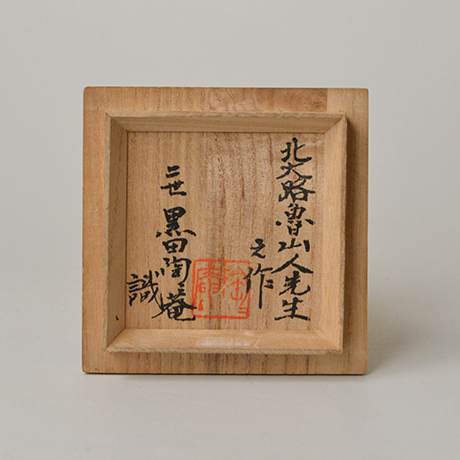 北大路魯山人先生
之作
二世 黒田陶々菴
識